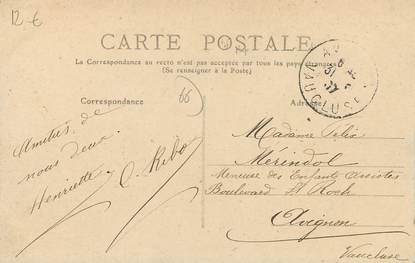 12 €
CARTE POSTALE
La Correspondance au recto n'est pas acceptée par tous les pays étrangers
(Se renseigner à la Poste)
Correspondance
66
Adresse
VAUCLUSE
Amitiés de
nous deux.
Henriette
C. Ribo
Madame Félix
Mérindol
Meneuse des Enfants Assistés
Boulevard St Roch
Avignon
Vaucluse